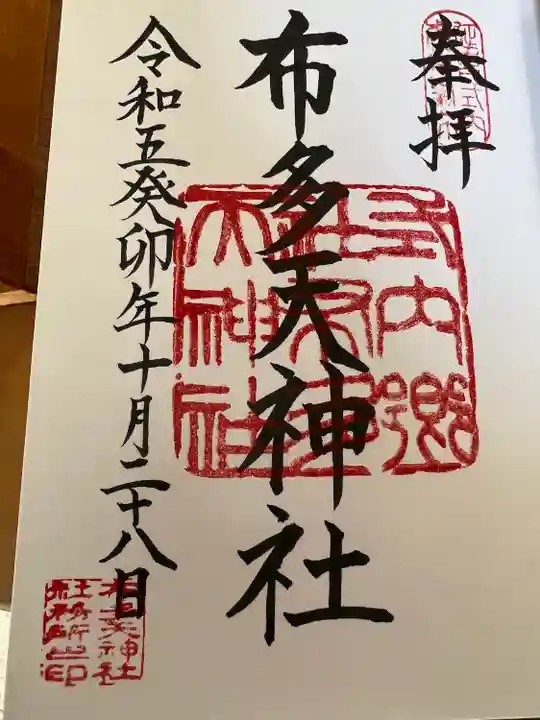 奉拝
布多天神社
令和五癸卯年十月二十八日
式内郷
天神社
布多天神社
社務所之印